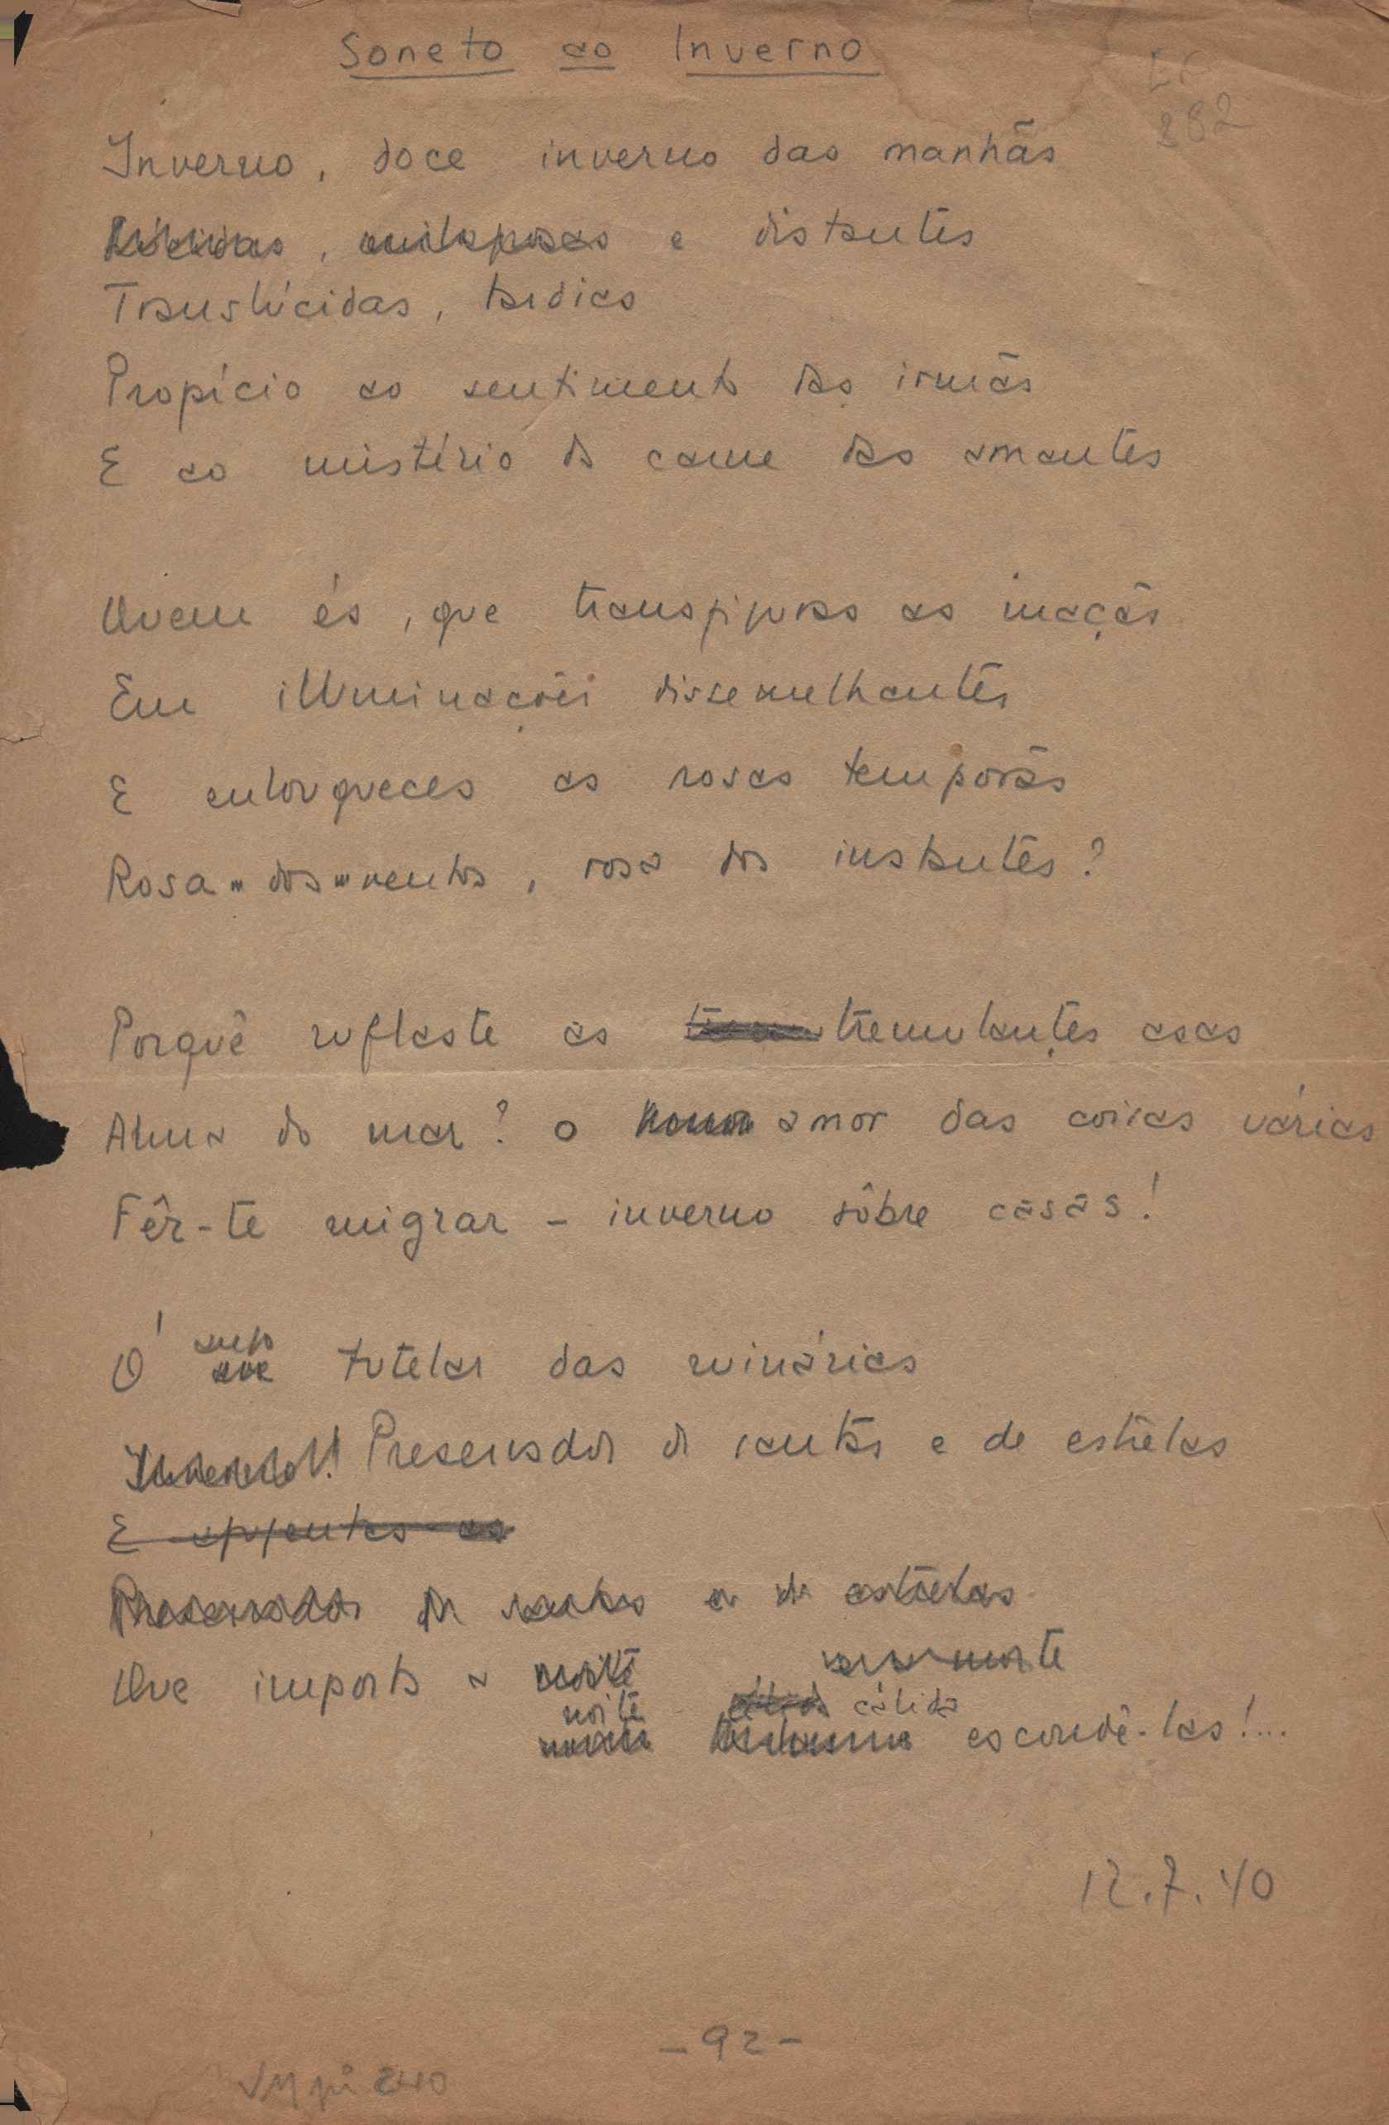 Soneto ao Inverno
282
Inverno, doce inverno das manhãs
e distantes
Translúcidas, tardias
Propício ao sentimento das irmãs
E ao mistério da carne das amantes
Quem és, que transfiguras as maçãs
Em illuminações dissemelhantes
E enlouqueces as rosas temporãs
Rosa-dos-ventos, rosa dos instantes?
Porquê ruflaste as tremulantes asas
Alma do mar? o amor das coisas várias
Fêr-te migrar - inverno sôbre casas!
anjo
Ó ave tutelar das luminárias
Preservador de santas e de estrêlas
E apascentas as
Preservador de santas e de estrêlas
Que importa a noite
noite cálida
escondê-las!...
12.7.40
-92-
VMpi 240